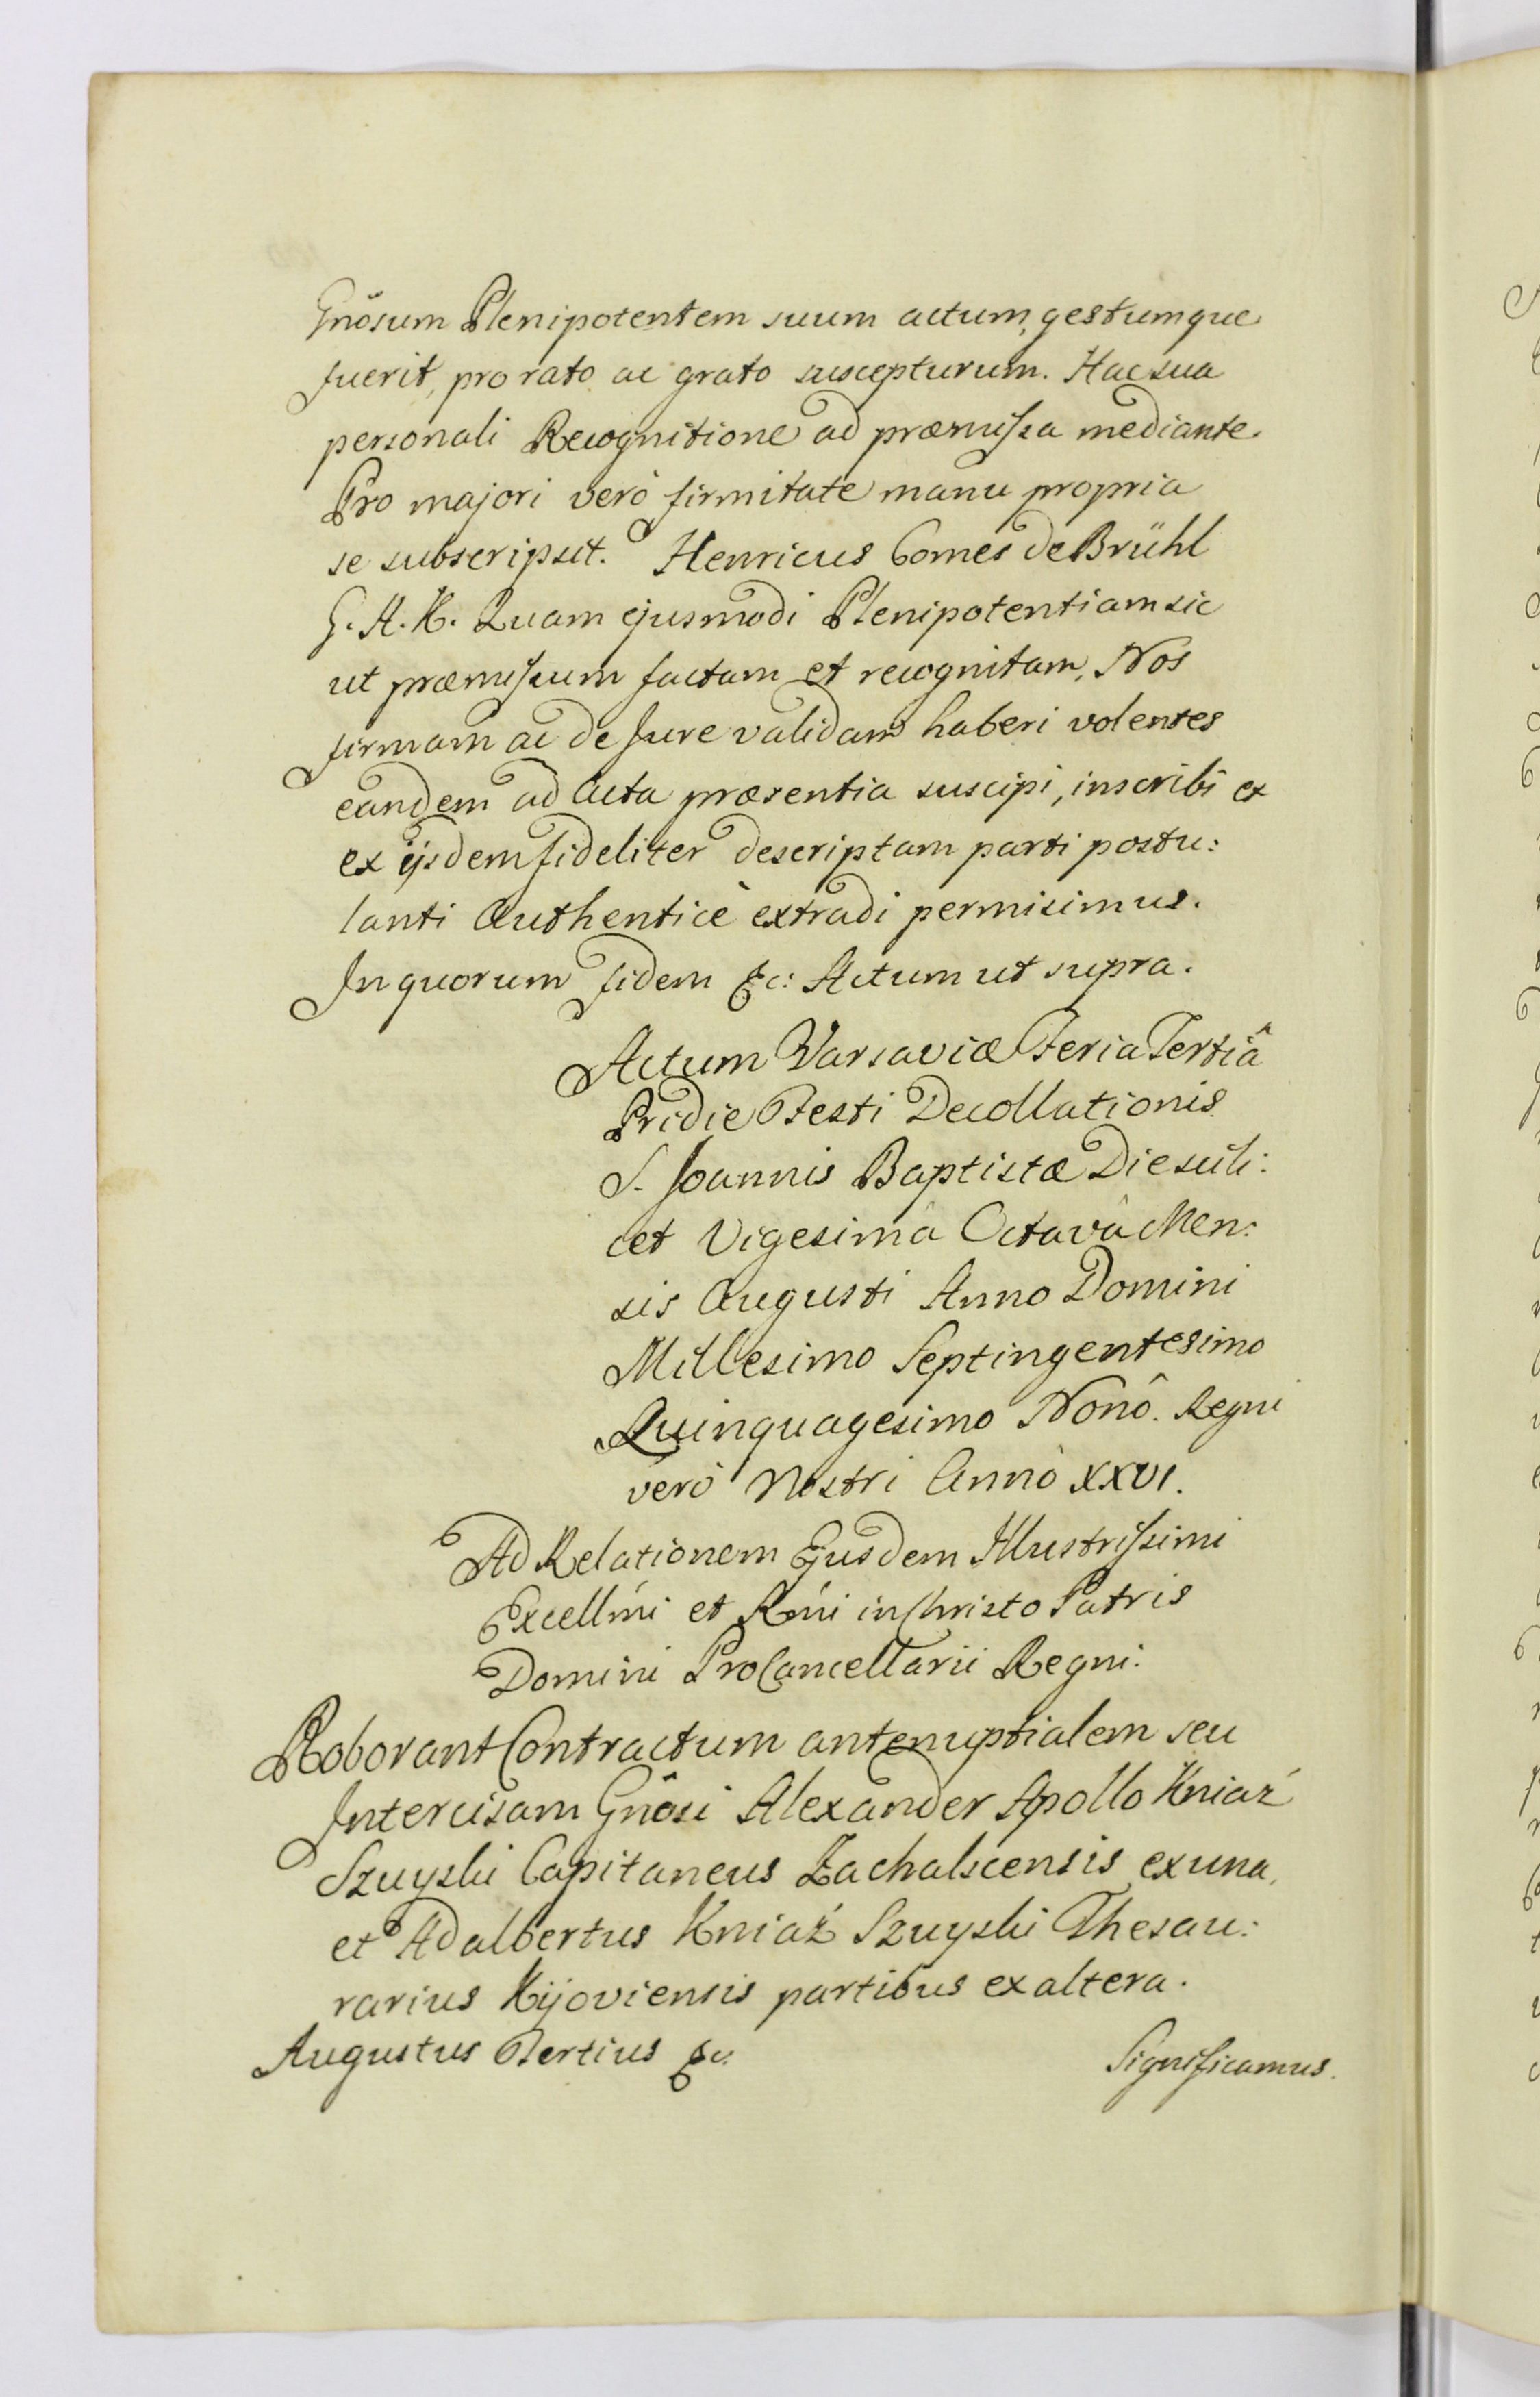 Gnõsum Plenipotentem suum actum, gestumque
fuerit, pro rato ac grato suscepturum. Hac sua
personali Recognitione ad præmissa mediante.
Pro majori verò firmitate manu propria
se subscripsit. Henricus Comes de Brühl
G. A. K. Quam ejusmodi Plenipotentiam sic
ut præmissum factam et recognitam, Nos
firmam ac de Jure validam haberi volentes
eandem ad Acta præsentia suscipi, inscribi et
ex ijsdem fideliter descriptam parti postu:
lanti Authenticè extradi permisimus.
In quorum fidem &c: Actum ut supra.
Actum Varsaviæ Feria Tertiâ
Pridie Festi Decollationis
S. Joannis Baptistæ Die scili:
cet Vigesimâ Octavâ Men:
sis Augusti Anno Domini
Millesimo Septingentesimo
Quinquagesimo Nonô. Regni
verò Nostri Annò XXVI.
Ad Relationem Ejusdem Illustrissimi
Excellm̃i et Rm̃i in Christo Patris
Domini ProCancellarii Regni.
Roborant Contractum antenuptialem seu
Intercisam Gnõsi Alexander Apollo Kniaź
Szuyski Capitaneus Zachalscensis ex una,
et Adalbertus Kniaź Szuyski Thesau:
rarius Kijoviensis partibus ex altera.
Augustus Tertius &c. Significamus.